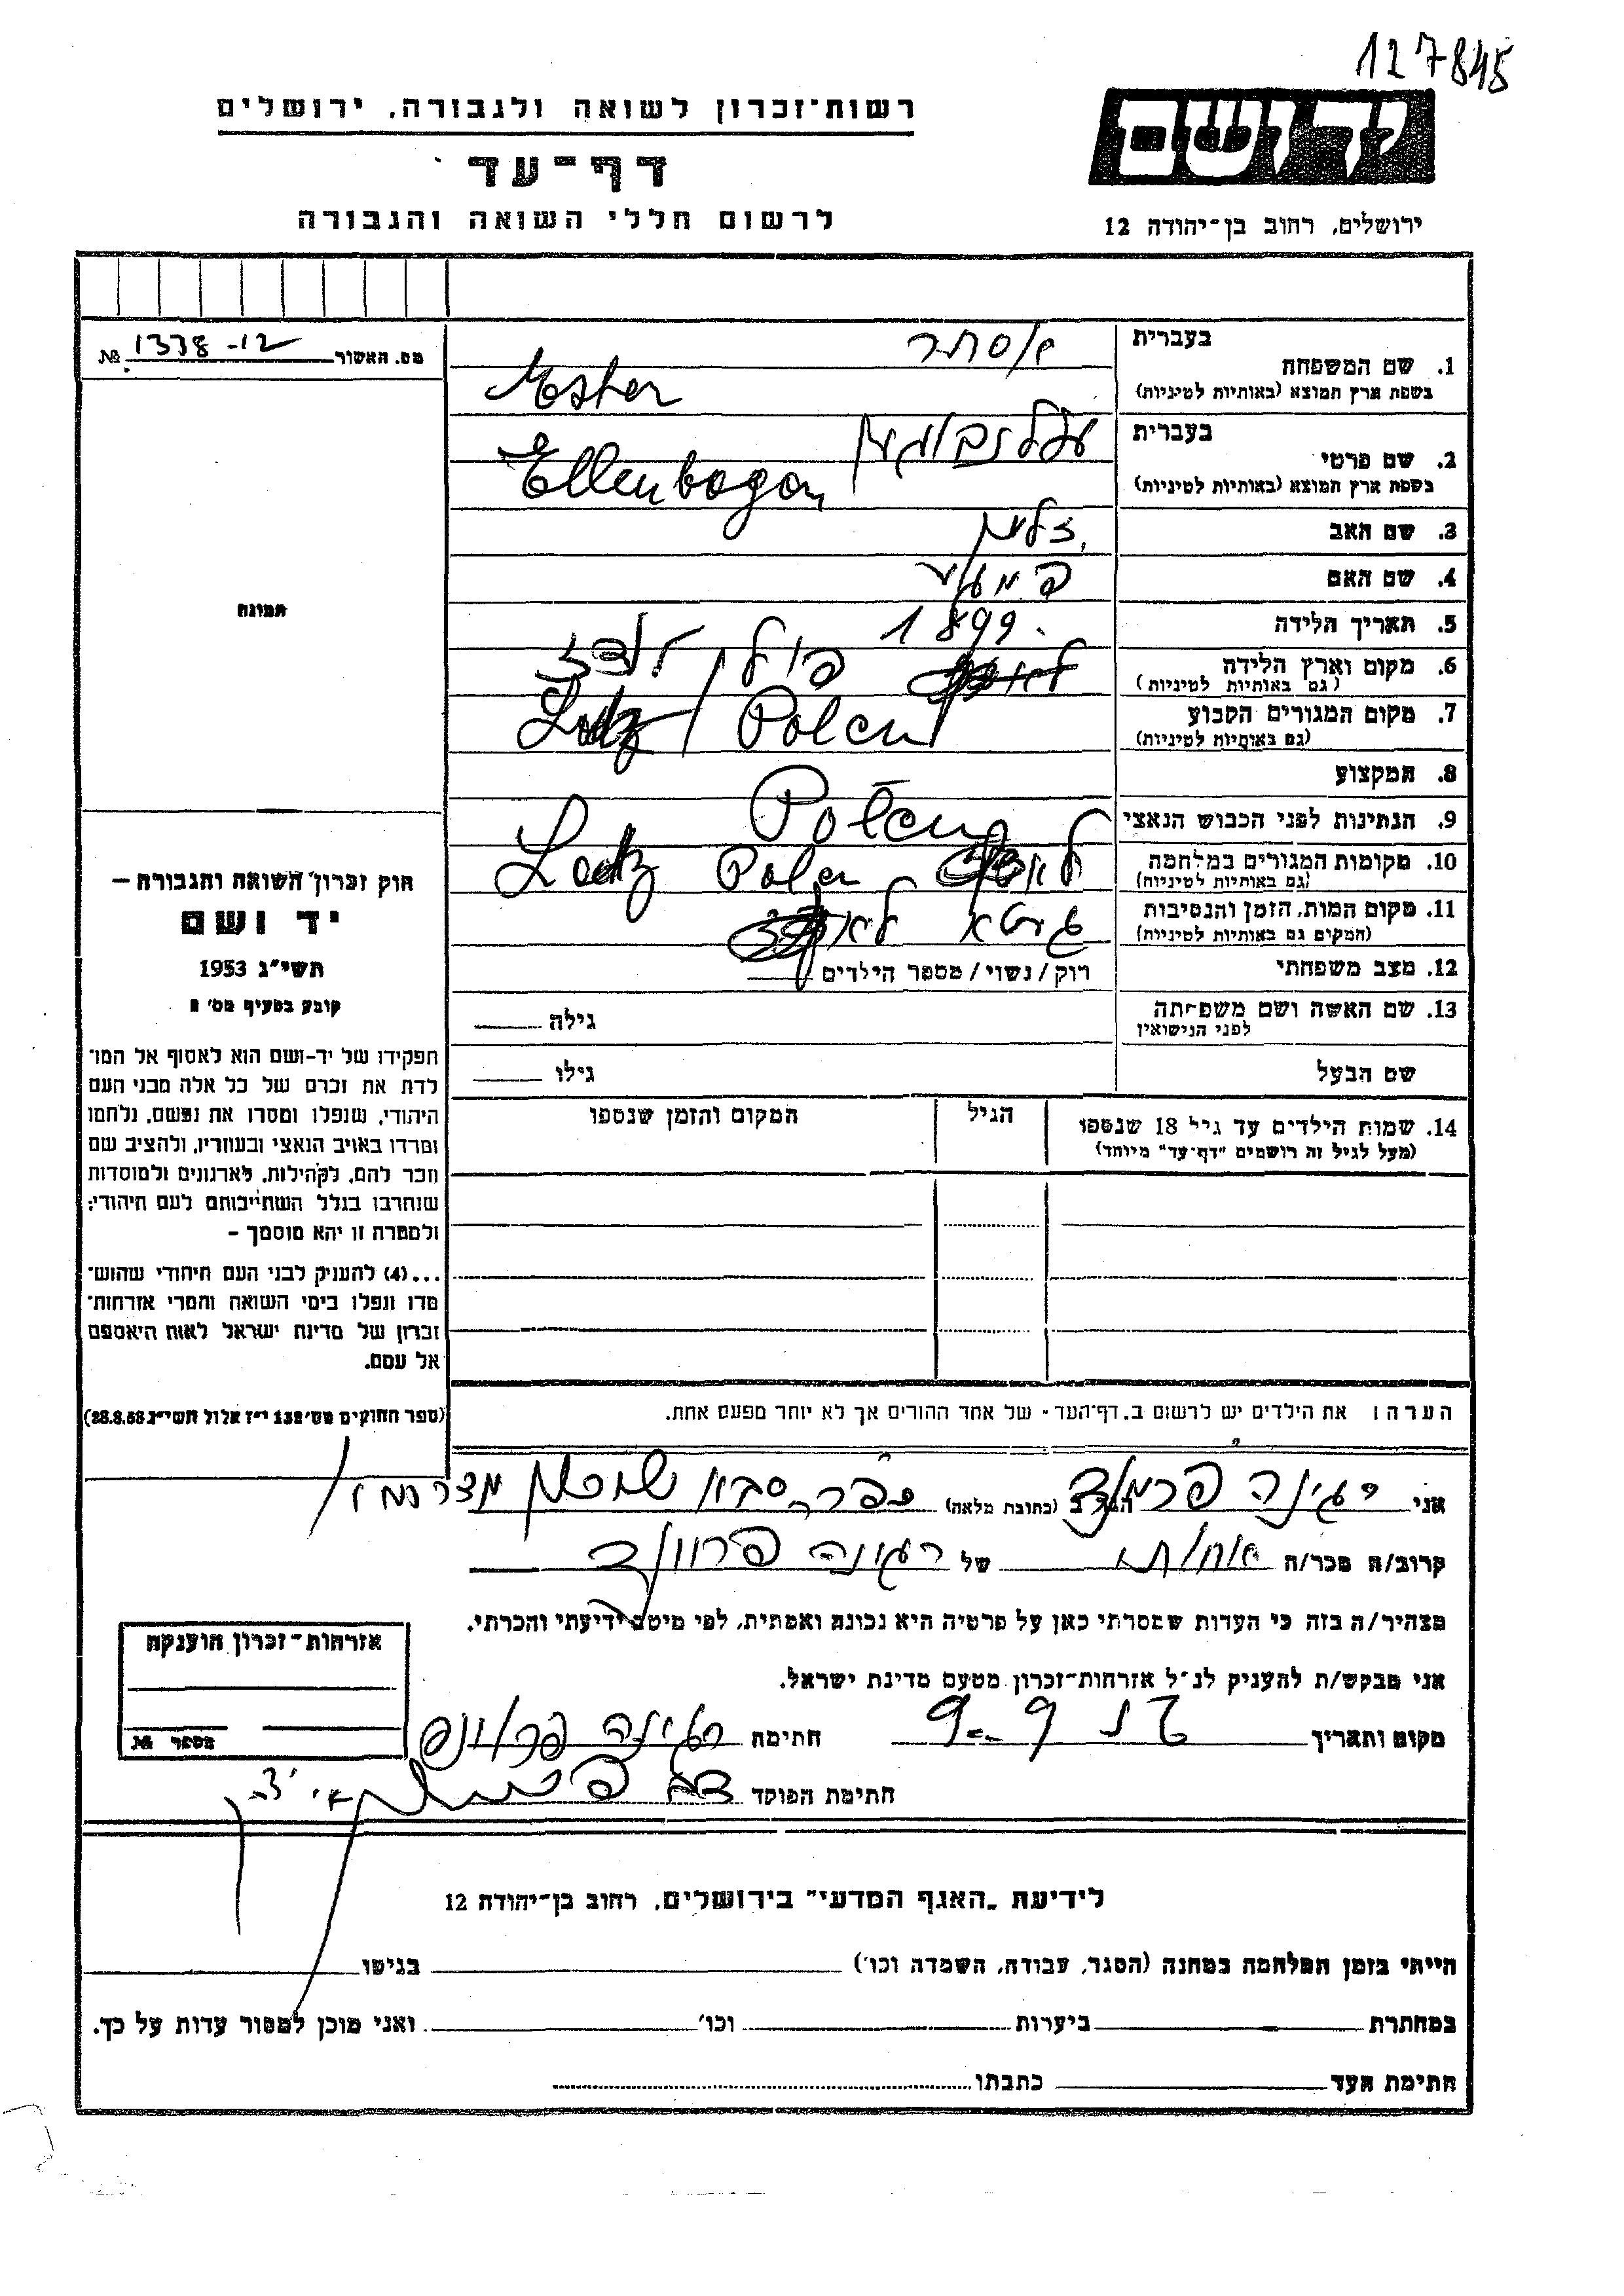 127845
רשות־זכרון לשואה ולגבורה, ירושלים
דף־עד
לרשום חללי השואה והגבורה
יד ושם
ירושלים, רחוב בן־יהודה 12
מס. האשור 1338-12 №
בעברית אסתר
1. שם המשפחה
בשפת ארץ המוצא (באותיות לטיניות) Ester
בעברית עללנבוגען
2. שם פרטי
בשפת ארץ המוצא (באותיות לטיניות) Ellenbogen
3. שם האב זלמן
4. שם האם
5. תאריך הלידה 1899
6. מקום וארץ הלידה פולין לודז
(גם באותיות לטיניות)
7. מקום המגורים הקבוע Lodz / Polen
(גם באותיות לטיניות)
8. המקצוע
9. הנתינות לפני הכבוש הנאצי Polen
10. מקומות המגורים במלחמה Lodz Polen
(גם באותיות לטיניות)
11. מקום המות, הזמן והנסיבות גיטא
(המקום גם באותיות לטיניות)
12. מצב משפחתי רוק/נשוי/מספר הילדים
13. שם האשה ושם משפחתה
לפני הנישואין
גילה
שם הבעל גילו
14. שמות הילדים עד גיל 18 שנספו הגיל המקום והזמן שנספו
(מעל לגיל זה רושמים "דף־עד" מיוחד)
תמונה
חוק זכרון השואה והגבורה –
יד ושם
תשי"ג 1953
קובע בסעיף מס' 2
תפקידו של יד-ושם הוא לאסוף אל המו־
לדת את זכרם של כל אלה מבני העם
היהודי, שנפלו ומסרו את נפשם, נלחמו
ומרדו באויב הנאצי ובעוזריו, ולהציב שם
וזכר להם, לקהילות, לארגונים ולמוסדות
שנחרבו בגלל השתייכותם לעם היהודי;
ולמטרה זו יהא מוסמך –
...(4) להעניק לבני העם היהודי שהוש־
מדו ונפלו בימי השואה והמרי אזרחות־
זכרון של מדינת ישראל לאות היאספם
אל עמם.
(ספר החוקים מס' 132 י"ז אלול תשי"ג 28.8.53)
הערה: את הילדים יש לרשום ב„דף־העד" של אחד ההורים אך לא יותר מפעם אחת.
אני רגינה פרמולד הגר ב (כתובת מלאה) כפר סבא שיכון
קרוב/ה מכר/ה אחות של רגינה פרוולד
מצהיר/ה בזה כי העדות שמסרתי כאן על פרטיה היא נכונה ואמתית, לפי מיטב ידיעתי והכרתי.
אני מבקש/ת להעניק לנ"ל אזרחות־זכרון מטעם מדינת ישראל.
מקום ותאריך חתימה רגינה
חתימת הפוקד
אזרחות־זכרון הוענקה
מספר №
לידיעת „האגף המדעי" בירושלים, רחוב בן־יהודה 12
הייתי בזמן המלחמה במחנה (הסגר, עבודה, השמדה וכו') בגיטו
במחתרת ביערות וכו' ואני מוכן למסור עדות על כך.
חתימת העד כתבתו